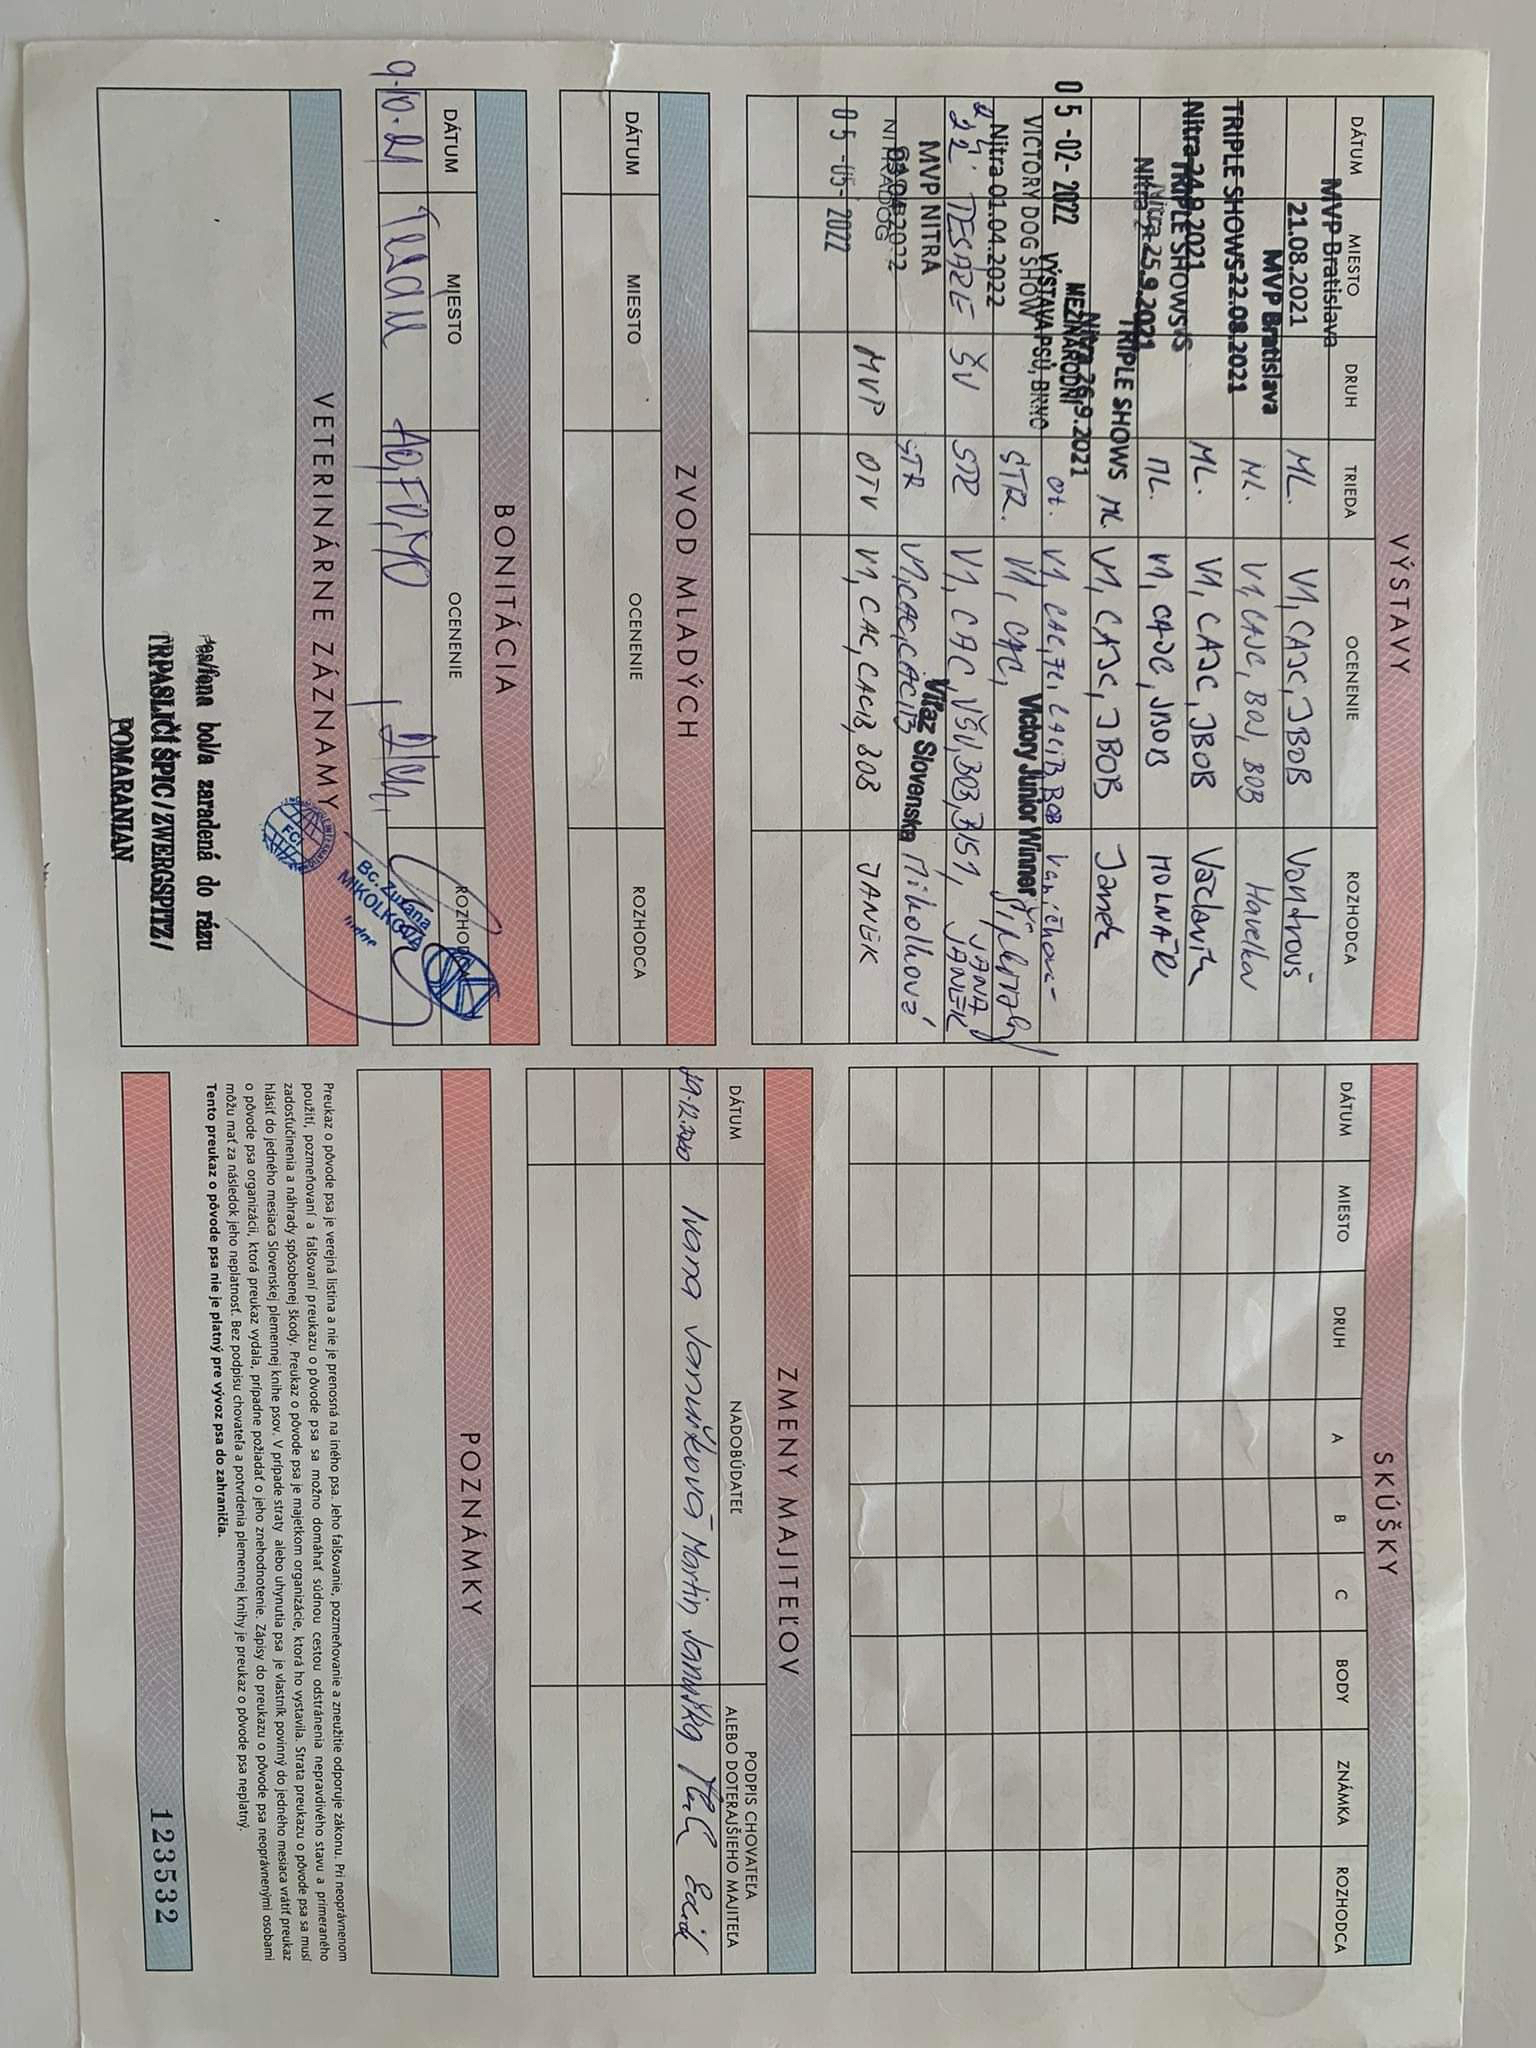 VÝSTAVY
DÁTUM MIESTO DRUH TRIEDA OCENENIE ROZHODCA
MVP Bratislava
21.08.2021 ML. V1, CAJC, JBOB Vondrouš
MVP Bratislava
22.08.2021 ML. V1, CAJC, BOJ, BOB Havelka
TRIPLE SHOWS
Nitra 24.9.2021 ML. V1, CAJC, JBOB Václavík
TRIPLE SHOWS
Nitra 25.9.2021 ML. V1, CAJC, JBOB MOLNÁR
TRIPLE SHOWS
Nitra 26.9.2021 ML. V1, CAJC, JBOB Janek
05-02-2022 MEZINÁRODNÍ
VÝSTAVA PSŮ, BRNO ot. V1, CAC, BOB
VICTORY DOG SHOW
Nitra 01.04.2022 ŠTR. V1, CAC, Victory Junior Winner
2.4. 22 TESÁRE ŠV STR V1, CAC, VŠV, BOB, BIS1, JANA JANEK
MVP NITRA
NITRADOG STR V1, CAC, CACIB Víťaz Slovenska Mikolková
05-05-2022 MVP OTV V1, CAC, CACIB, BOB JANEK
ZVOD MLADÝCH
DÁTUM MIESTO OCENENIE ROZHODCA
BONITÁCIA
DÁTUM MIESTO OCENENIE ROZHODCA
9.10.21 AO, FO, MO
Bc. Zuzana
MIKOLKOVÁ
FCI
VETERINÁRNE ZÁZNAMY
Pes/fena bol/a zaradená do rázu
TRPASLIČÍ ŠPIC / ZWERGSPITZ /
POMARANIAN
SKÚŠKY
DÁTUM MIESTO DRUH A B C BODY ZNÁMKA ROZHODCA
ZMENY MAJITEĽOV
DÁTUM NADOBÚDATEĽ PODPIS CHOVATEĽA
ALEBO DOTERAJŠIEHO MAJITEĽA
29.12.2020 Ivana Janušková Martin Januška
POZNÁMKY
Preukaz o pôvode psa je verejná listina a nie je prenosná na iného psa. Jeho falšovanie, pozmeňovanie a zneužitie odporuje zákonu. Pri neoprávnenom
použití, pozmeňovaní a falšovaní preukazu o pôvode psa sa možno domáhať súdnou cestou odstránenia nepravdivého stavu a primeraného
zadosťučinenia a náhrady spôsobenej škody. Preukaz o pôvode psa je majetkom organizácie, ktorá ho vystavila. Strata preukazu o pôvode psa sa musí
hlásiť do jedného mesiaca Slovenskej plemennej knihe psov. V prípade straty alebo uhynutia psa je vlastník povinný do jedného mesiaca vrátiť preukaz
o pôvode psa organizácii, ktorá preukaz vydala, prípadne požiadať o jeho znehodnotenie. Zápisy do preukazu o pôvode psa neoprávnenými osobami
môžu mať za následok jeho neplatnosť. Bez podpisu chovateľa a potvrdenia plemennej knihy je preukaz o pôvode psa neplatný.
Tento preukaz o pôvode psa nie je platný pre vývoz psa do zahraničia.
123532